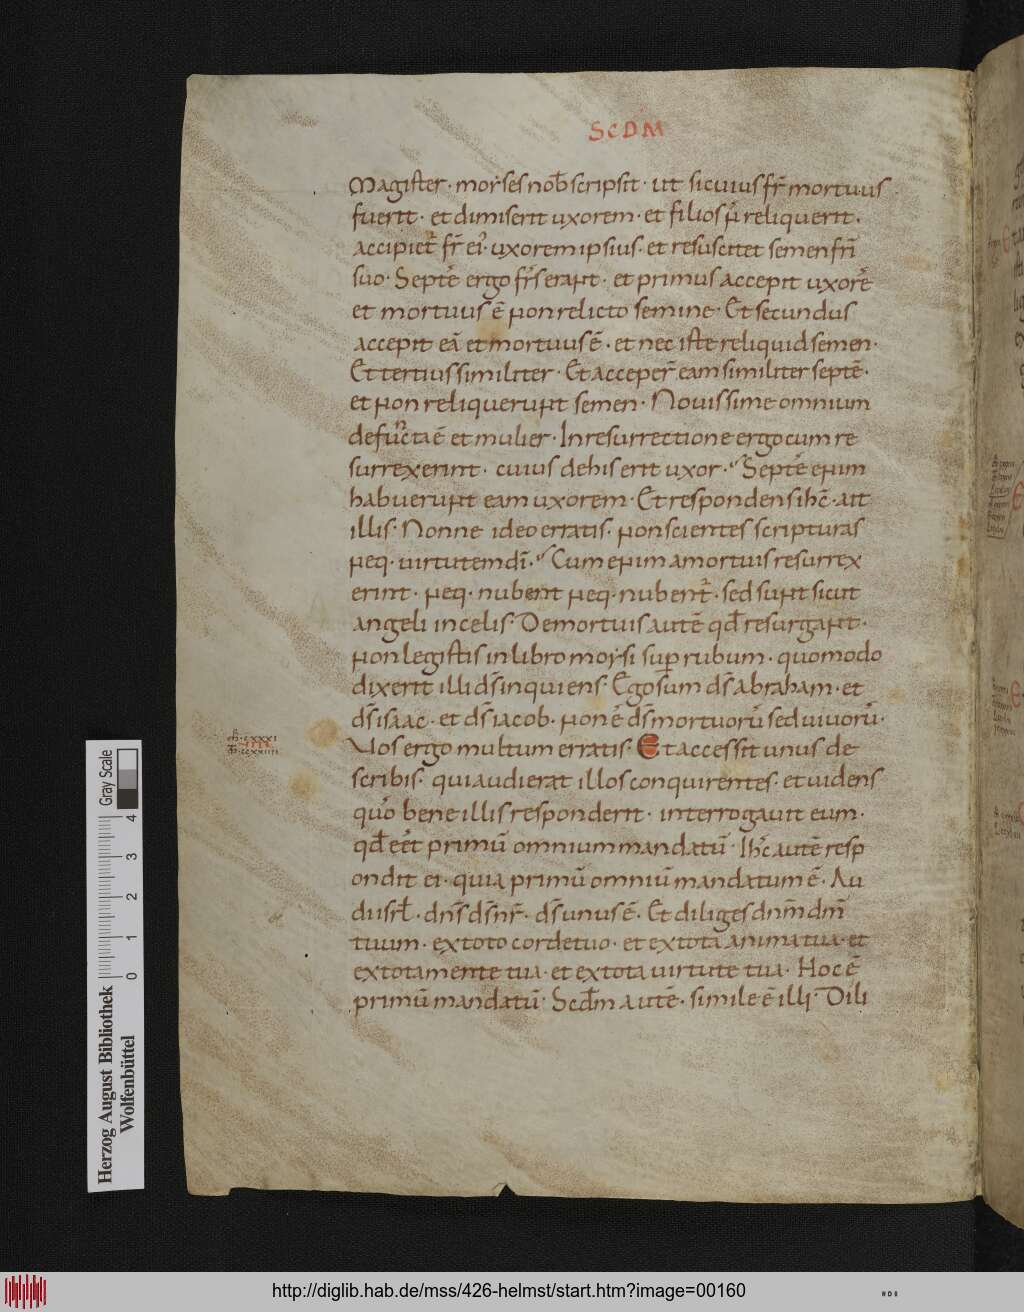 SCDM
Magister · moyses nob̄ scripsit · ut si cuius fr̄ mortuus
fuerit · et dimiserit uxorem · et filios n̄ reliquerit ·
accipiet̄ fr̄ ei' · uxorem ipsius · et resuscitet semen fr̄i
suo · Septē ergo fr̄s erant · et primus accepit uxorē
et mortuus ē non relicto semine · Et secundus
accepit eā et mortuus ē · et nec iste reliquid semen ·
Et tertius similiter · Et acceper̄ eam similiter septē ·
et non reliquerunt semen · Nouissime omnium
defuncta ē et mulier · In resurrectione ergo cum re
surrexerint · cuius de his erit uxor · Septē enim
habuerunt eam uxorem · Et respondens ih̄c · ait
illis · Nonne ideo erratis · non scientes scripturas
neq · uirtutem dī · Cum enim a mortuis resurrex
erint · neq · nubent neq · nubent̄ · sed sunt sicut
angeli in celis · De mortuis autē qd̄ resurgant ·
non legistis in libro moysi sup rubum · quomodo
dixerit illi d̄s inquiens · Ego sum d̄s abraham · et
d̄s isaac · et d̄s iacob · non ē d̄s mortuorū sed uiuorū ·
Uos ergo multum erratis · Et accessit unus de
scribis · qui audierat illos conquirentes · et uidens
quō bene illis responderit · interrogauit eum ·
qd̄ eēt primū omnium mandatū · Ih̄c autē resp
ondit ei · quia primū omniū mandatum ē · Au
di isrl̄ · dn̄s d̄s nr̄ · d̄s unus ē · Et diliges dn̄m dm̄
tuum · ex toto corde tuo · et ex tota anima tua · et
ex tota mente tua · et ex tota uirtute tua · Hoc ē
primū mandatū · Scd̄m autē · simile ē illi · Dili
CXXXI
CCXXIIII
Gray Scale
0 1 2 3 4
Herzog August Bibliothek
Wolfenbüttel
http://diglib.hab.de/mss/426-helmst/start.htm?image=00160